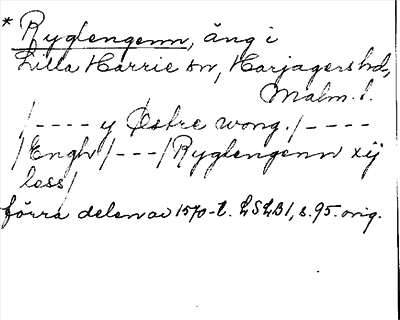 * Ryglengenn, äng i
Lilla Harrie sn, Harjagers hd,
Malm. l.
/---- y Østre wong. /----
/Engh/ --- /Ryglengenn xij
less/
förra delen av 1570-t. LSLB1, s. 95. orig.